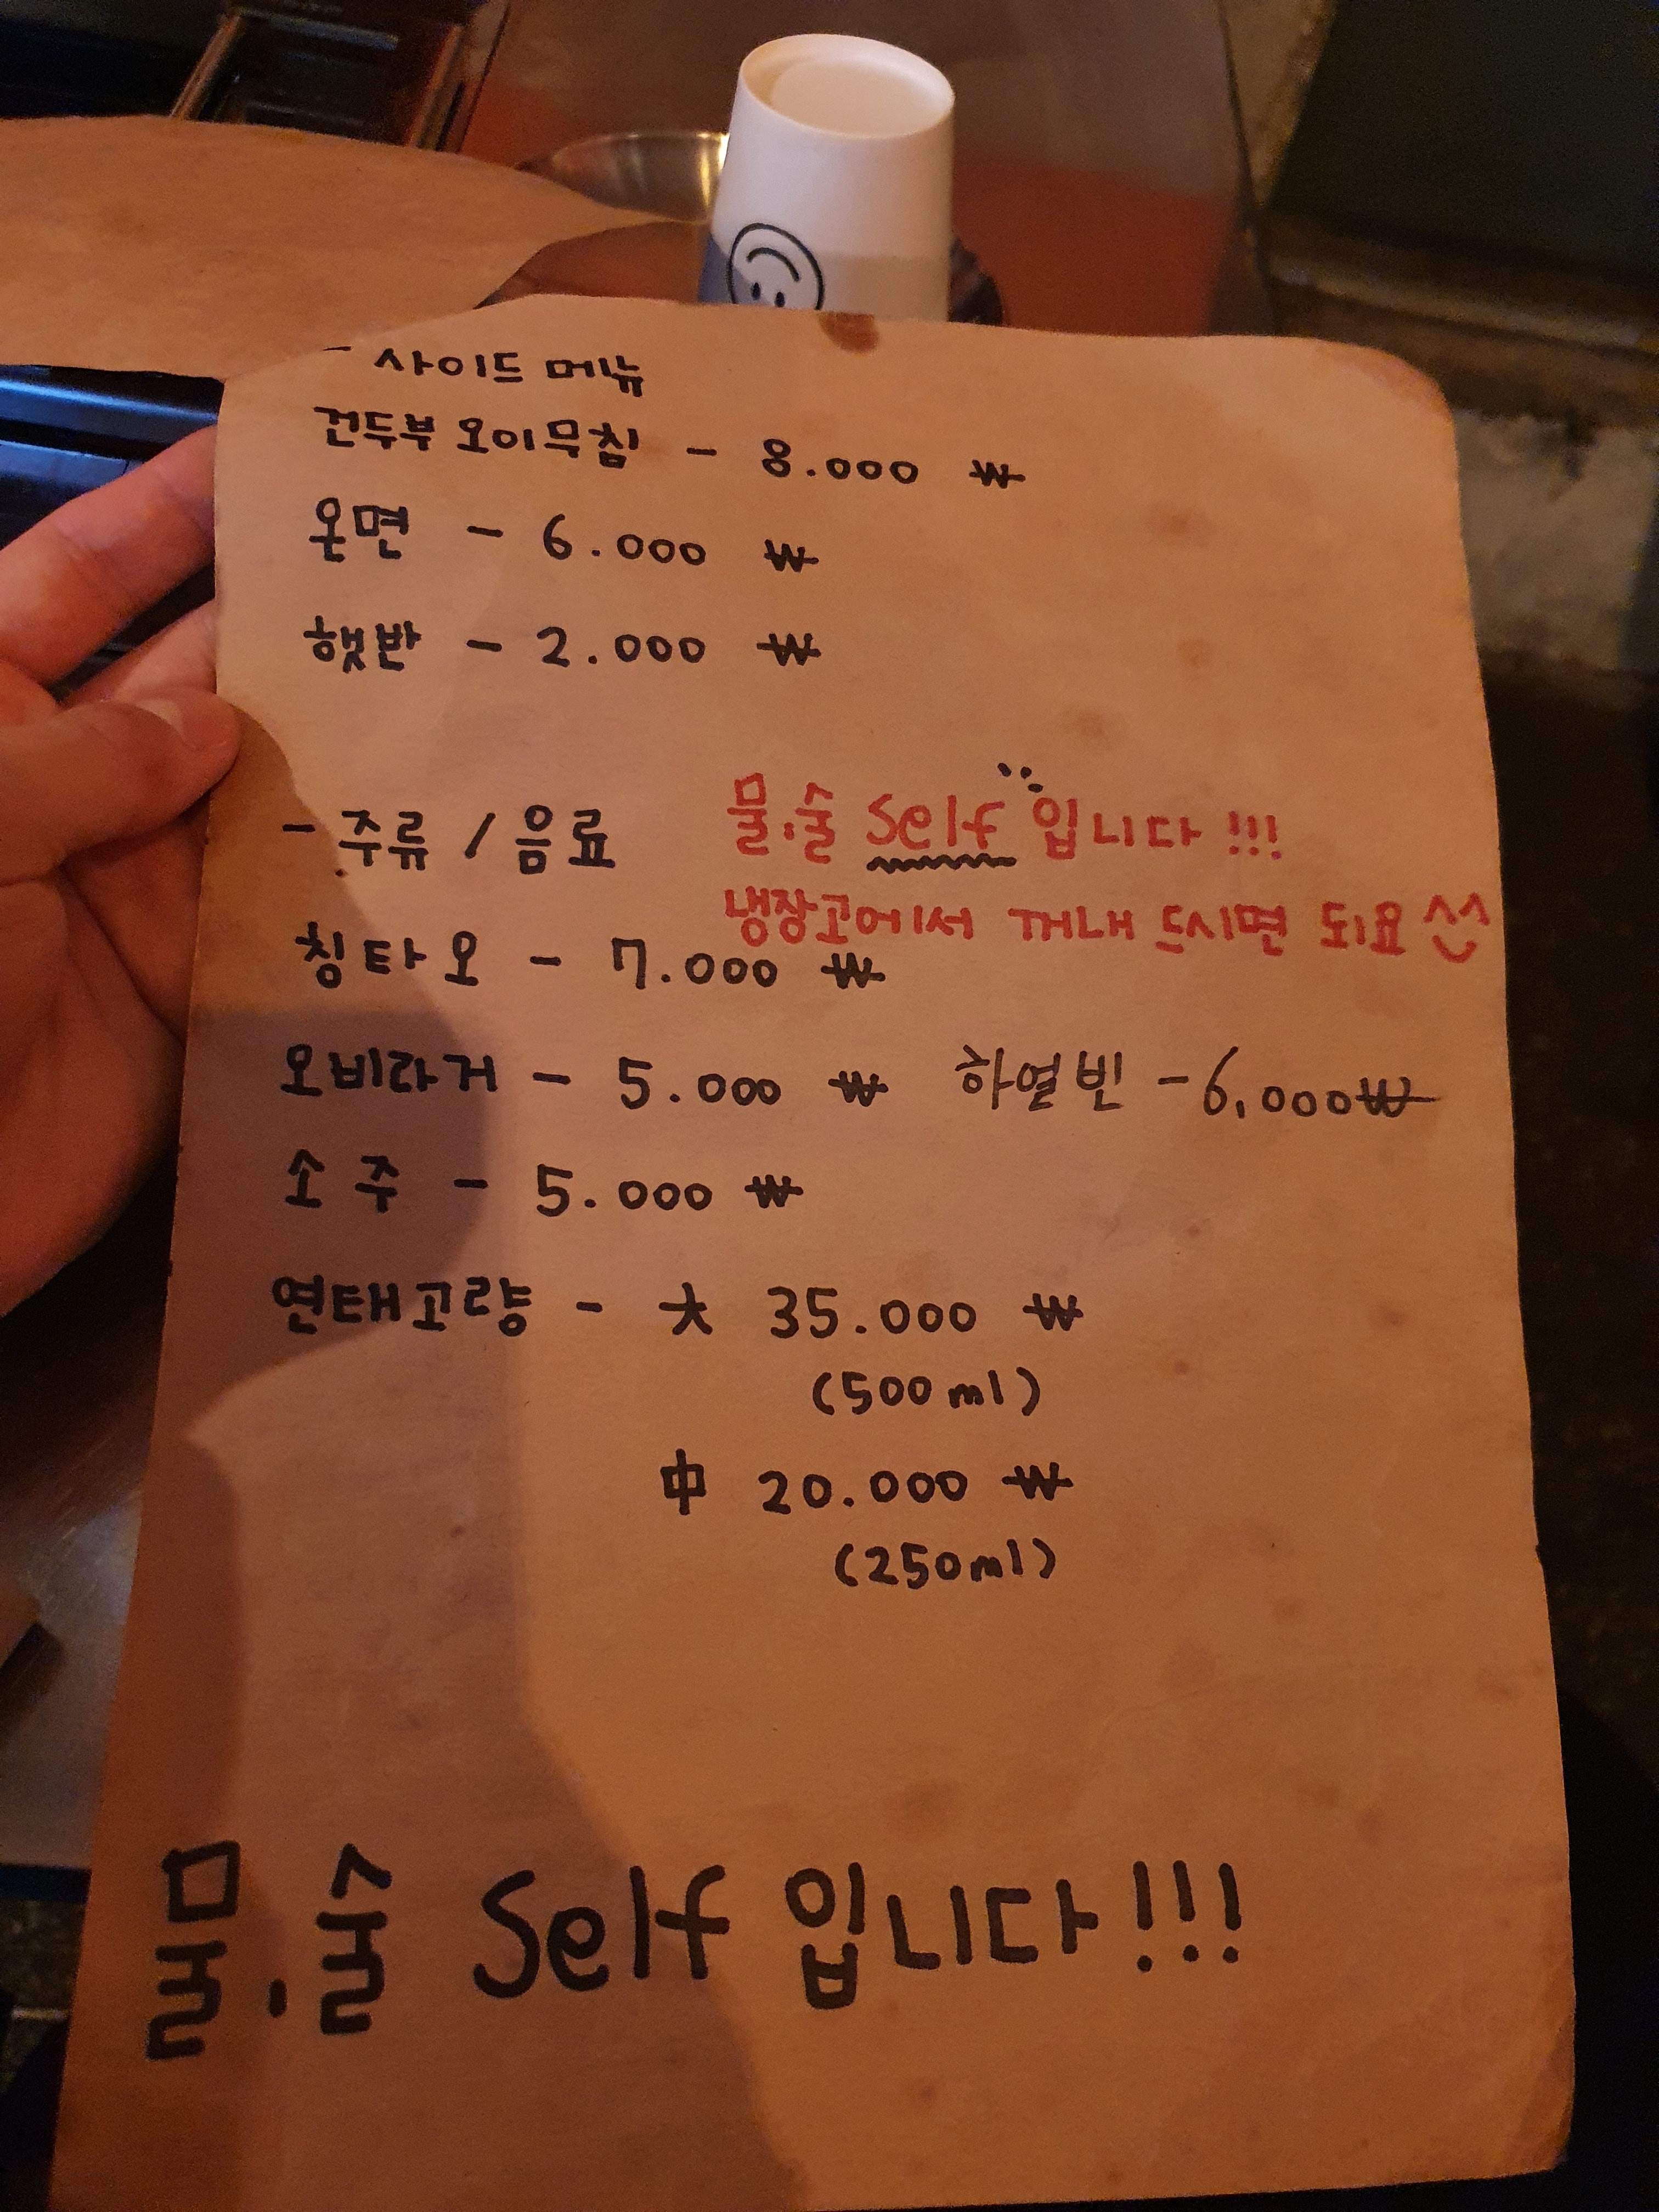 - 사이드 메뉴
건두부 오이무침 - 8.000 ₩
온면 - 6.000 ₩
햇반 - 2.000 ₩
- 주류 / 음료
물.술 Self 입니다!!!
냉장고에서 꺼내 드시면 되요 ^^
칭타오 - 7.000 ₩
오비라거 - 5.000 ₩ 하얼빈 - 6,000₩
소주 - 5.000 ₩
연태고량 - 大 35.000 ₩
(500ml)
中 20.000 ₩
(250ml)
물.술 Self 입니다!!!